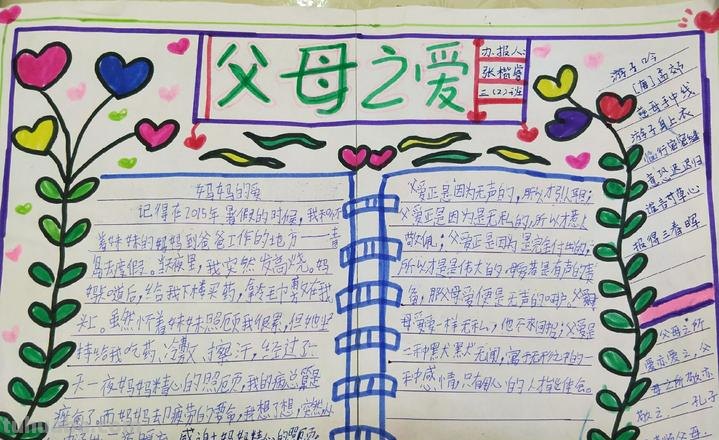 父母之爱
办报人:
张楷
三(2)班
妈妈的爱
记得在2015年暑假的时候,我和怀
着妹妹的妈妈到爸爸工作的地方——青
岛去度假。半夜里,我突然发高烧。妈
妈知道后,给我下楼买药,拿冷毛巾敷在我
头上。虽然怀着妹妹照顾我很累,但她坚
持给我吃药、冷敷、擦汗,经过了一
天一夜妈妈精心的照顾,我的病总算是
痊愈了。而妈妈去只疲劳的
感谢妈妈精心的照顾
父爱正是因为无声的,所以才引人
父爱正是因为是无私的,所以才惹人
敬佩;父爱正是因为是完全付出的,
所以才是是伟大的。
父母爱便是无声的
母爱一样无私,他不求回报;父爱是
一种默默无闻,寓于无形之中的一
种感情,只有心的人才能体会。
游子吟
[唐]孟郊
慈母手中线
游子身上衣
临行密密缝
意恐迟迟归
谁言寸草心
报得三春晖
父母之所
爱亦爱之,父
母之所敬亦
敬之——孔子